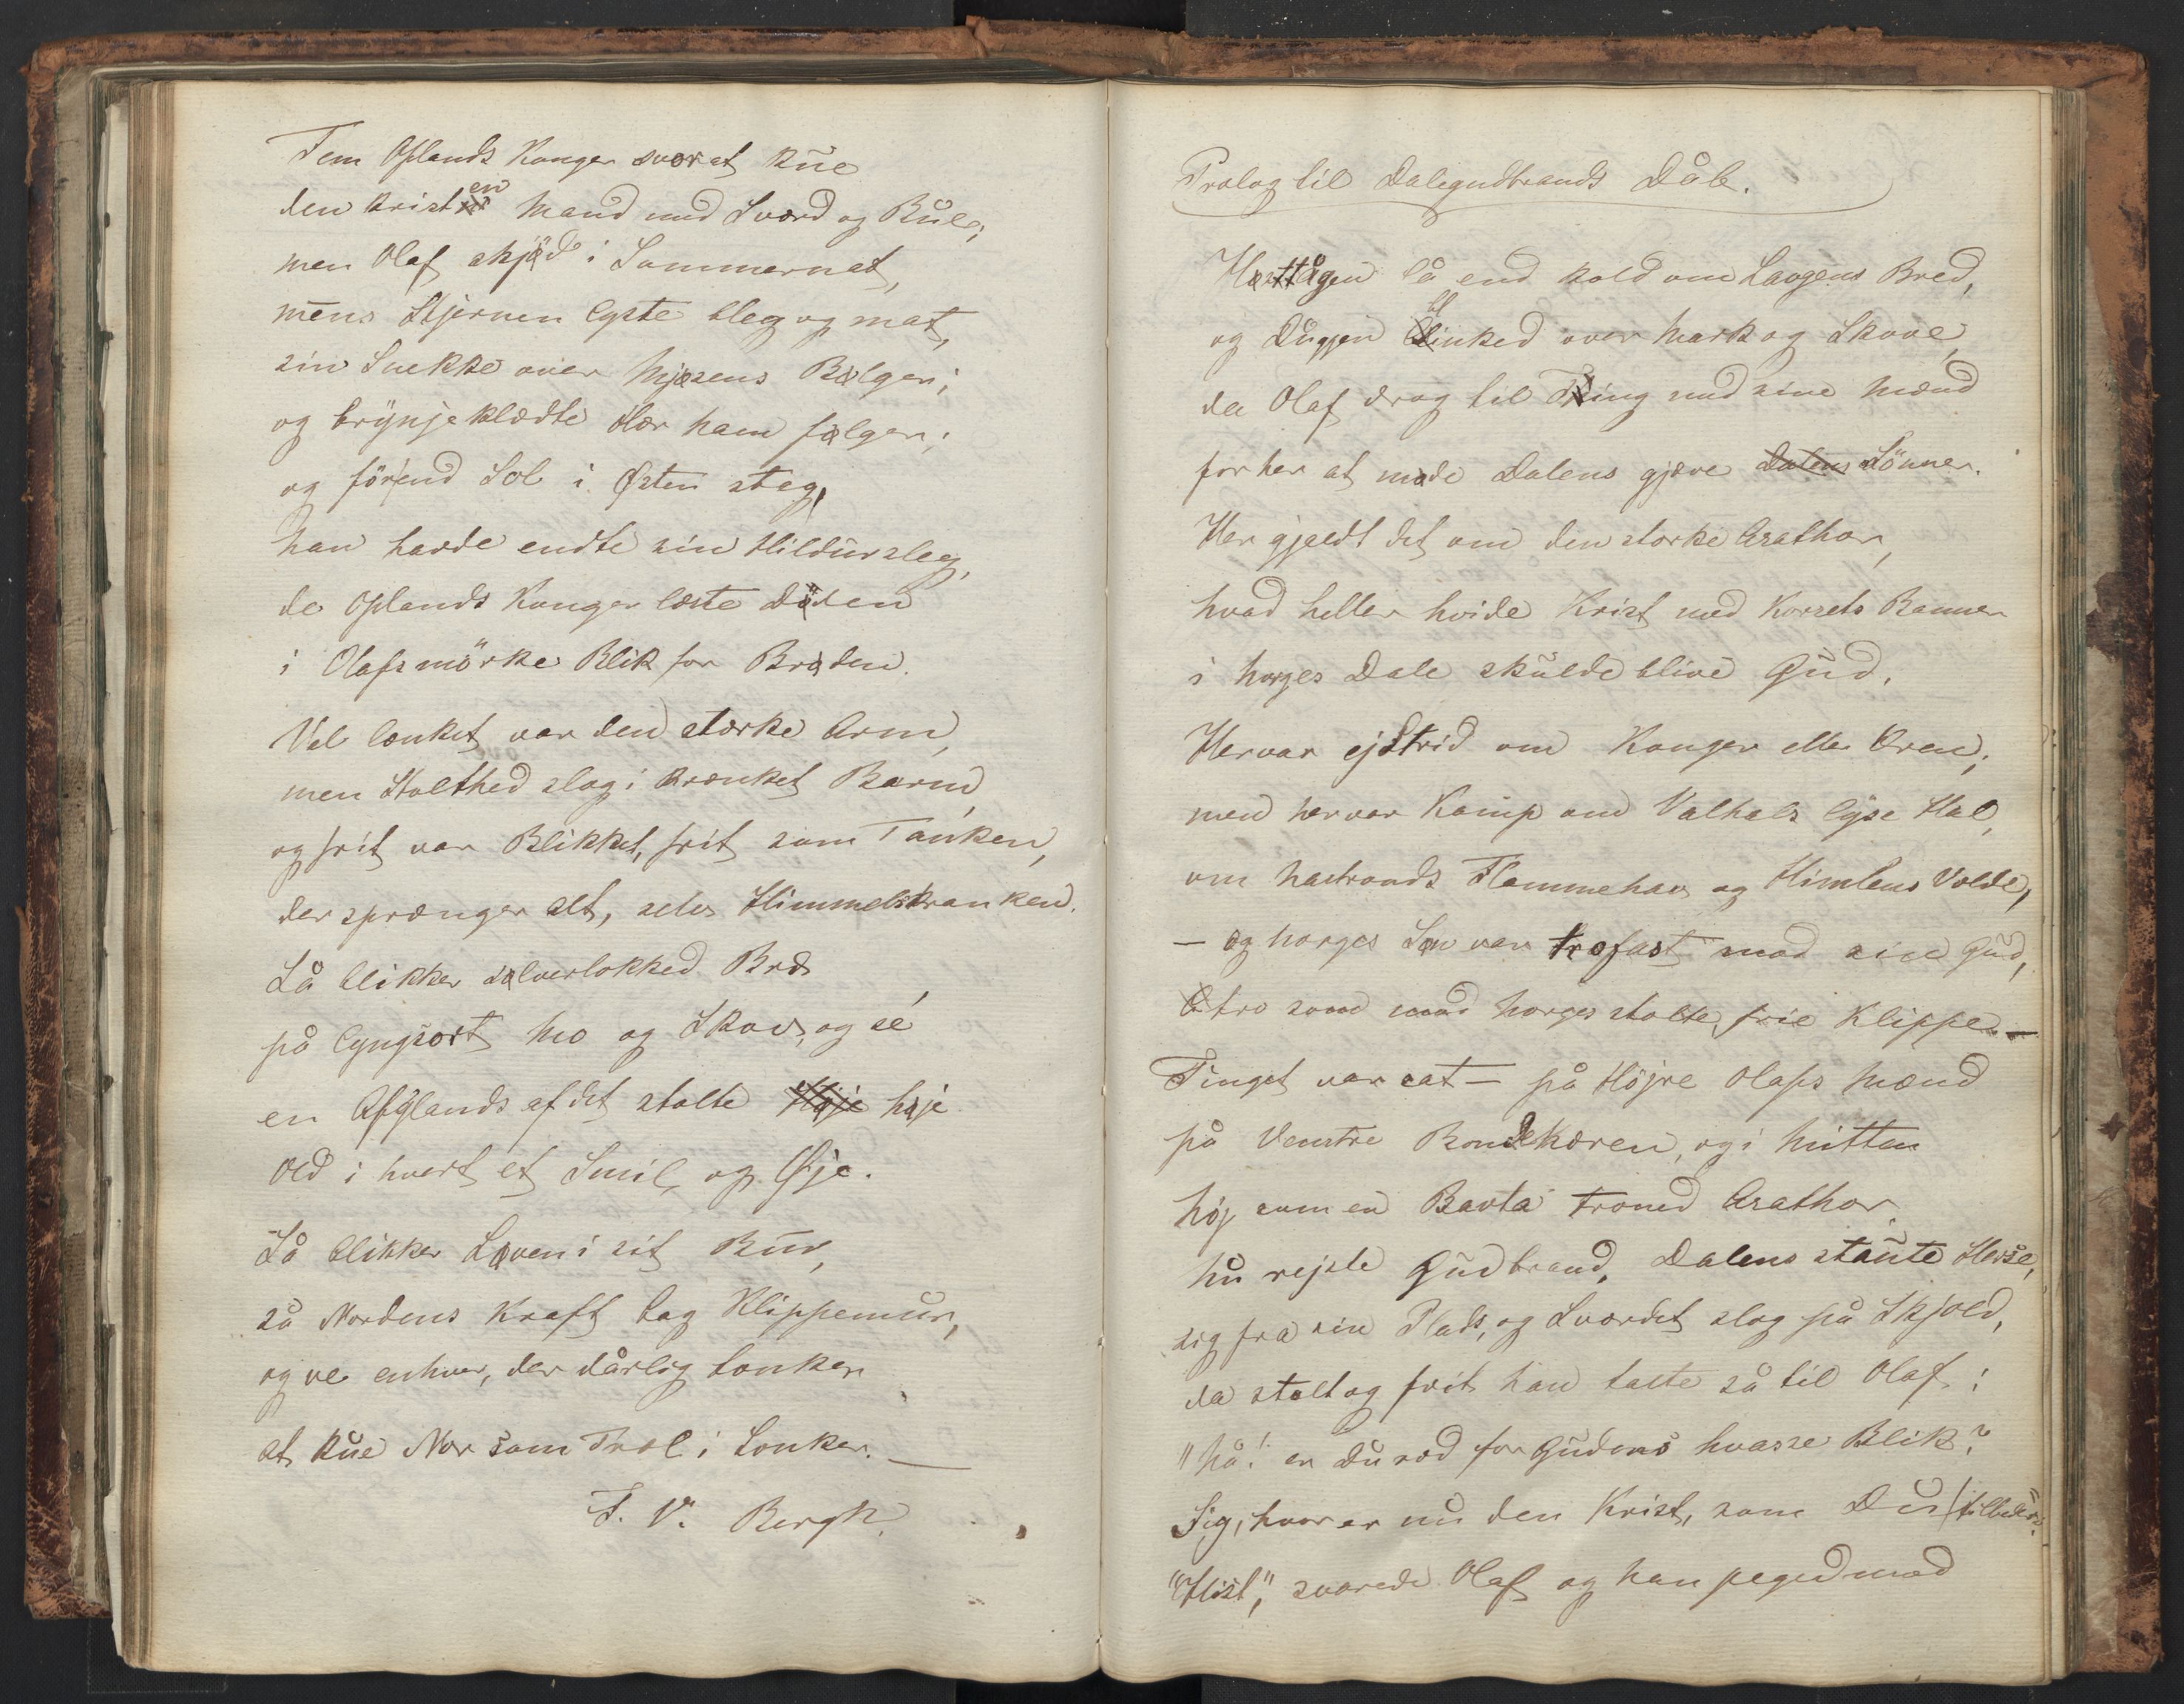 Fem Oplands Konger svor at kue
den kristen Mand med Sværd og Bue;
men Olaf skjød i Sommernat,
mens Stjernen lyste bleg og mat,
sin Snekke over Mjøsens Bølger;
og brynjeklædte Hær ham følger;
og førend Sol i Østen steg,
han havde endte sin Hildursleg,
de Oplands Konger læste Døden
i Olafs mörke Blik for Brøden.
Vel lænket var den stærke Arm,
men Stolthed slog i krænket Barm,
og frit var Blikket, frit som Tanken,
der sprænger alt, selv Himmelskranken.
Så blikker sølverlokked Bræ
på lyngsort Mo og Skov, og sé
en Afglands af det stolte Høje høje
lå i hvert et Smil og Øje.
Så blikker Løven i sit Bur,
så Nordens Kraft bag Klippemur,
og ve enhver, der dårlig tænker
at kue Nor som Træl i Lænker. —
F. V. Bergh.
Prolog til Dalegudbrands Dåb.
Høsttågen lå end kold om Laagens Bred,
og Duggen blinked over Mark og Skove,
da Olaf drog til Ting med sine Mænd
for her at møde Dalens gjæve Dalens Sönner.
Her gjældt det om den stærke Asathor,
hvad heller hvide Krist med Korsets Banner
i Norges Dale skulde blive Gud.
Her var ej Strid om Konger eller Kron;
men her var Kamp om Valhals lyse Hal,
om Nastrands Flammehav og Himlens Volde,
— og Norges Søn var trofast mod sin Gud,
tro som mod Norges stolte, frie Klipper —
Tinget var sat — på Højre Olafs Mænd
på Venstre Bondehæren, og i Mitten
høj som en Bavta troned Asathor.
Nu rejste Gudbrand, Dalens staute Herse,
sig fra sin Plads, og Sværdet slog på Skjold,
da stolt og frit han talte så til Olaf:
"Nå! er Du ræd for Gudens hvasse Blik?
Sig, hvor er nu den Krist, som Du tilbeder?"
"Hist," svarede Olaf og han peged mod